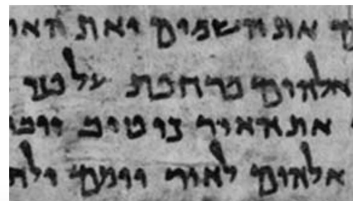 ם את השמים ואת האר
אלהים מרחפת על פני
את האור כי טוב ויבד
אלהים לאור יומם ולח